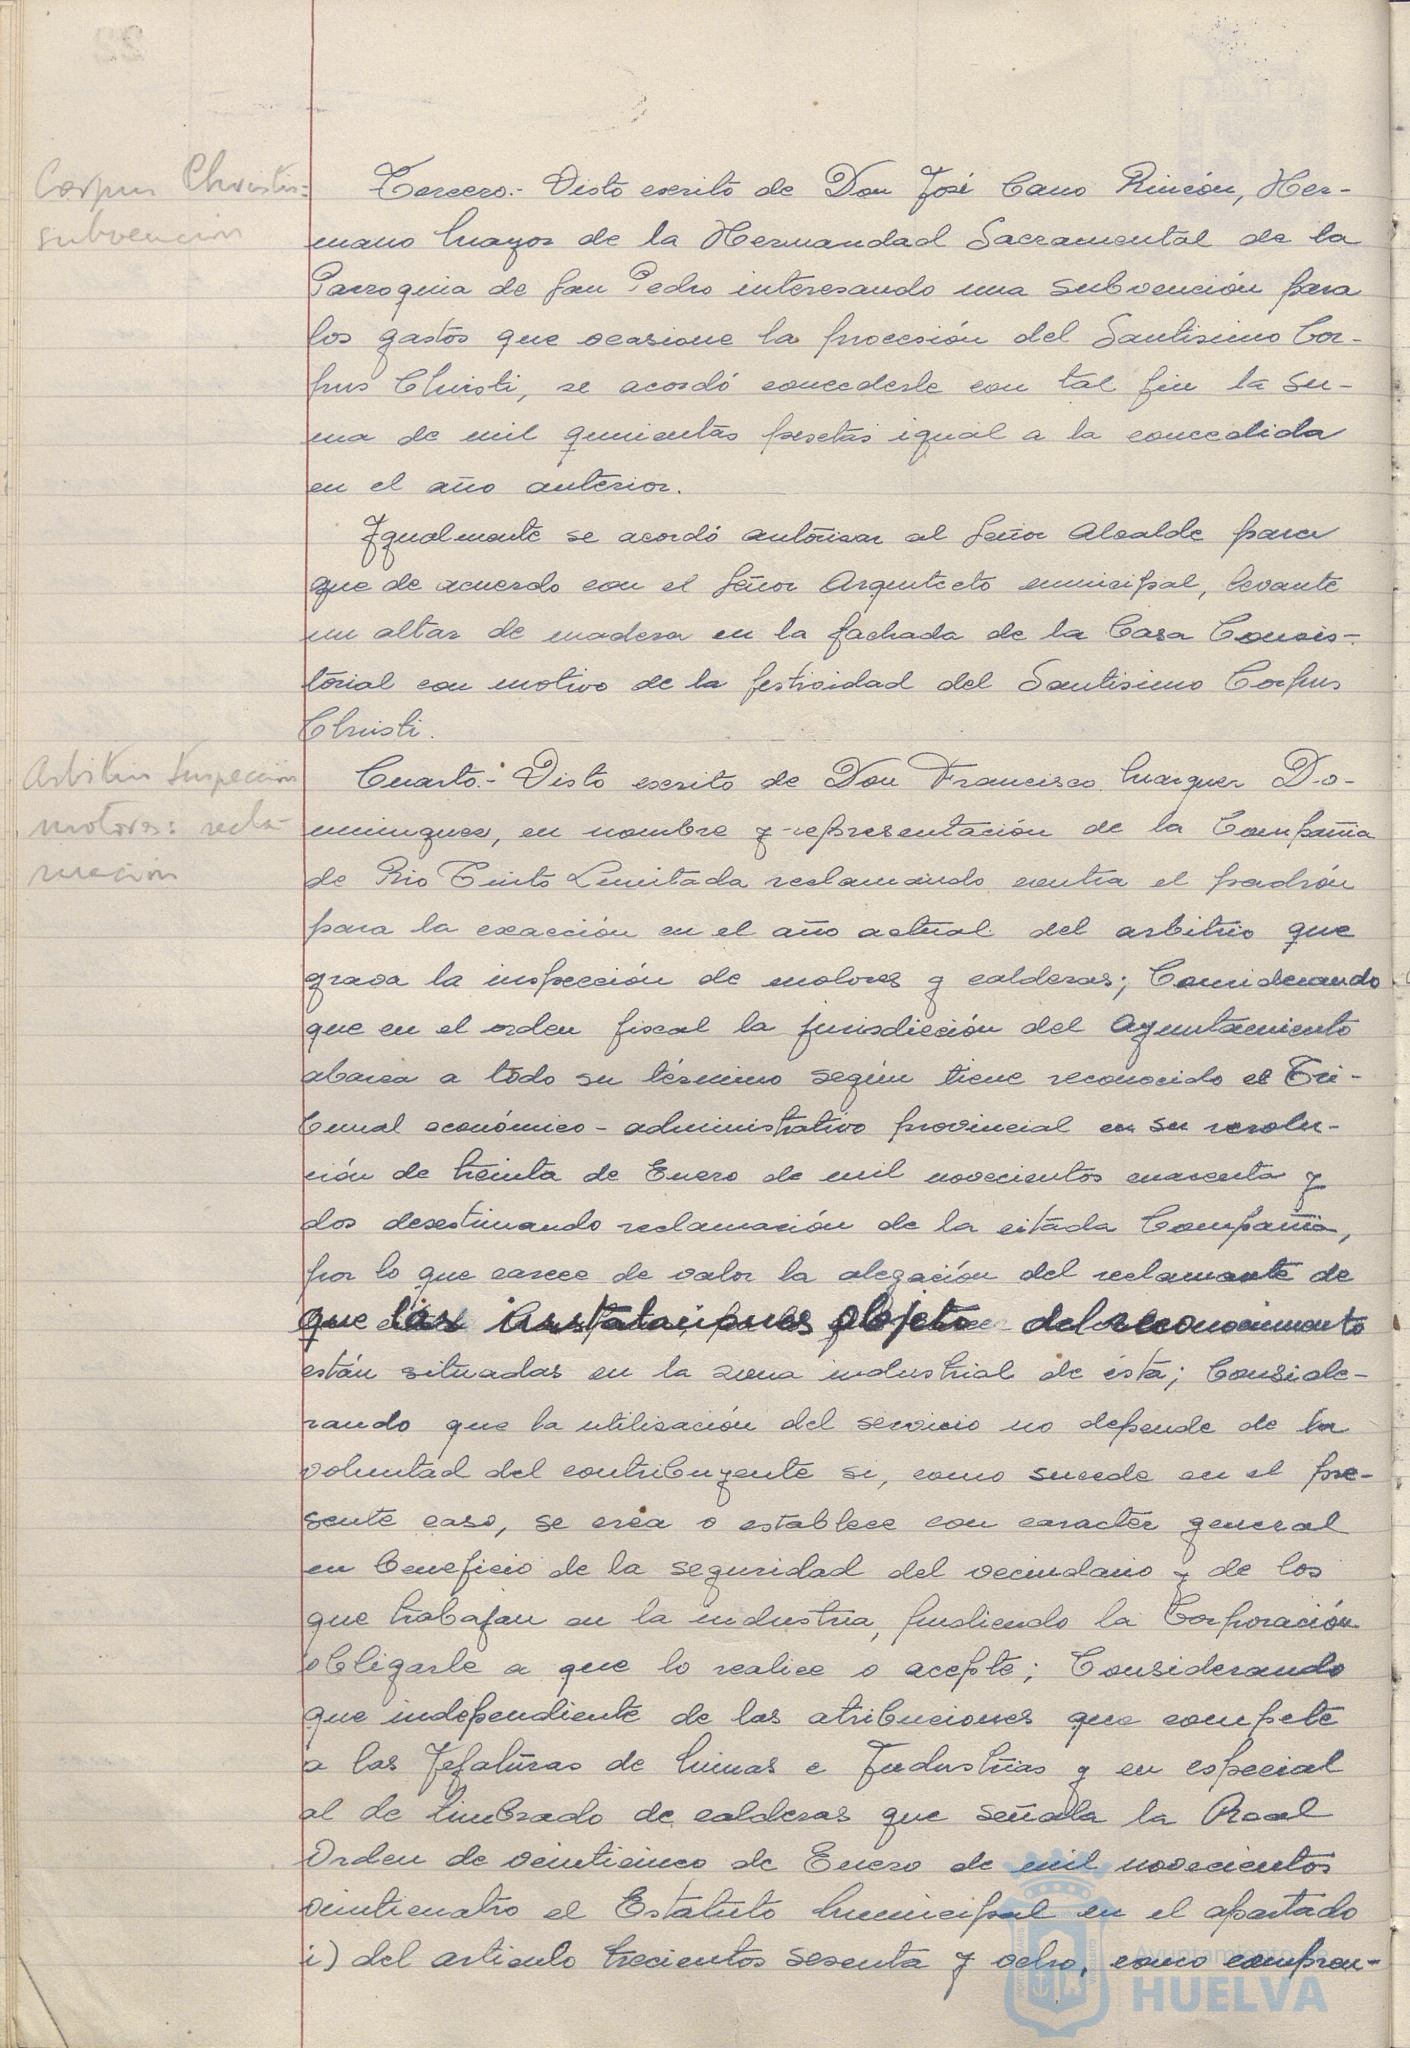 Corpus Christi:
subvención
Tercero.- Visto escrito de Don José Cano Rincón, Her-
mano Mayor de la Hermandad Sacramental de la
Parroquia de San Pedro interesando una subvención para
los gastos que ocasione la procesión del Santísimo Cor-
pus Christi, se acordó concederle con tal fin la su-
ma de mil quinientas pesetas igual a la concedida
en el año anterior.
Igualmente se acordó autorizar al Señor Alcalde para
que de acuerdo con el Señor Arquitecto municipal, levante
un altar de madera en la fachada de la Casa Consis-
torial con motivo de la festividad del Santísimo Corpus
Christi.
Arbitrio Inspección
motores: recla-
mación
Cuarto.- Visto escrito de Don Francisco Marquez Do-
minguez, en nombre y representación de la Compañia
de Rio Tinto Limitada reclamando contra el padrón
para la exacción en el año actual del arbitrio que
grava la inspección de motores y calderas; Considerando
que en el orden fiscal la jurisdicción del Ayuntamiento
abarca a todo su término según tiene reconocido el Tri-
bunal económico-administrativo provincial en su resolu-
ción de treinta de Enero de mil novecientos cuarenta y
dos desestimando reclamación de la citada Compañia,
por lo que carece de valor la alegación del reclamante de
que las instalaciones objeto del reconocimiento
están situadas en la zona industrial de ésta; Conside-
rando que la utilización del servicio no depende de la
voluntad del contribuyente si, como sucede en el pre-
sente caso, se crea o establece con caracter general
en beneficio de la seguridad del vecindario y de los
que trabajan en la industria, pudiendo la Corporación
obligarle a que lo realice o acepte; Considerando
que independiente de las atribuciones que compete
a las Jefaturas de Minas e Industrias y en especial
al de timbrado de calderas que señala la Real
Orden de veinticinco de Enero de mil novecientos
veinticuatro el Estatuto Municipal en el apartado
i) del articulo trecientos sesenta y ocho, como compren-
Ayuntamiento de
HUELVA